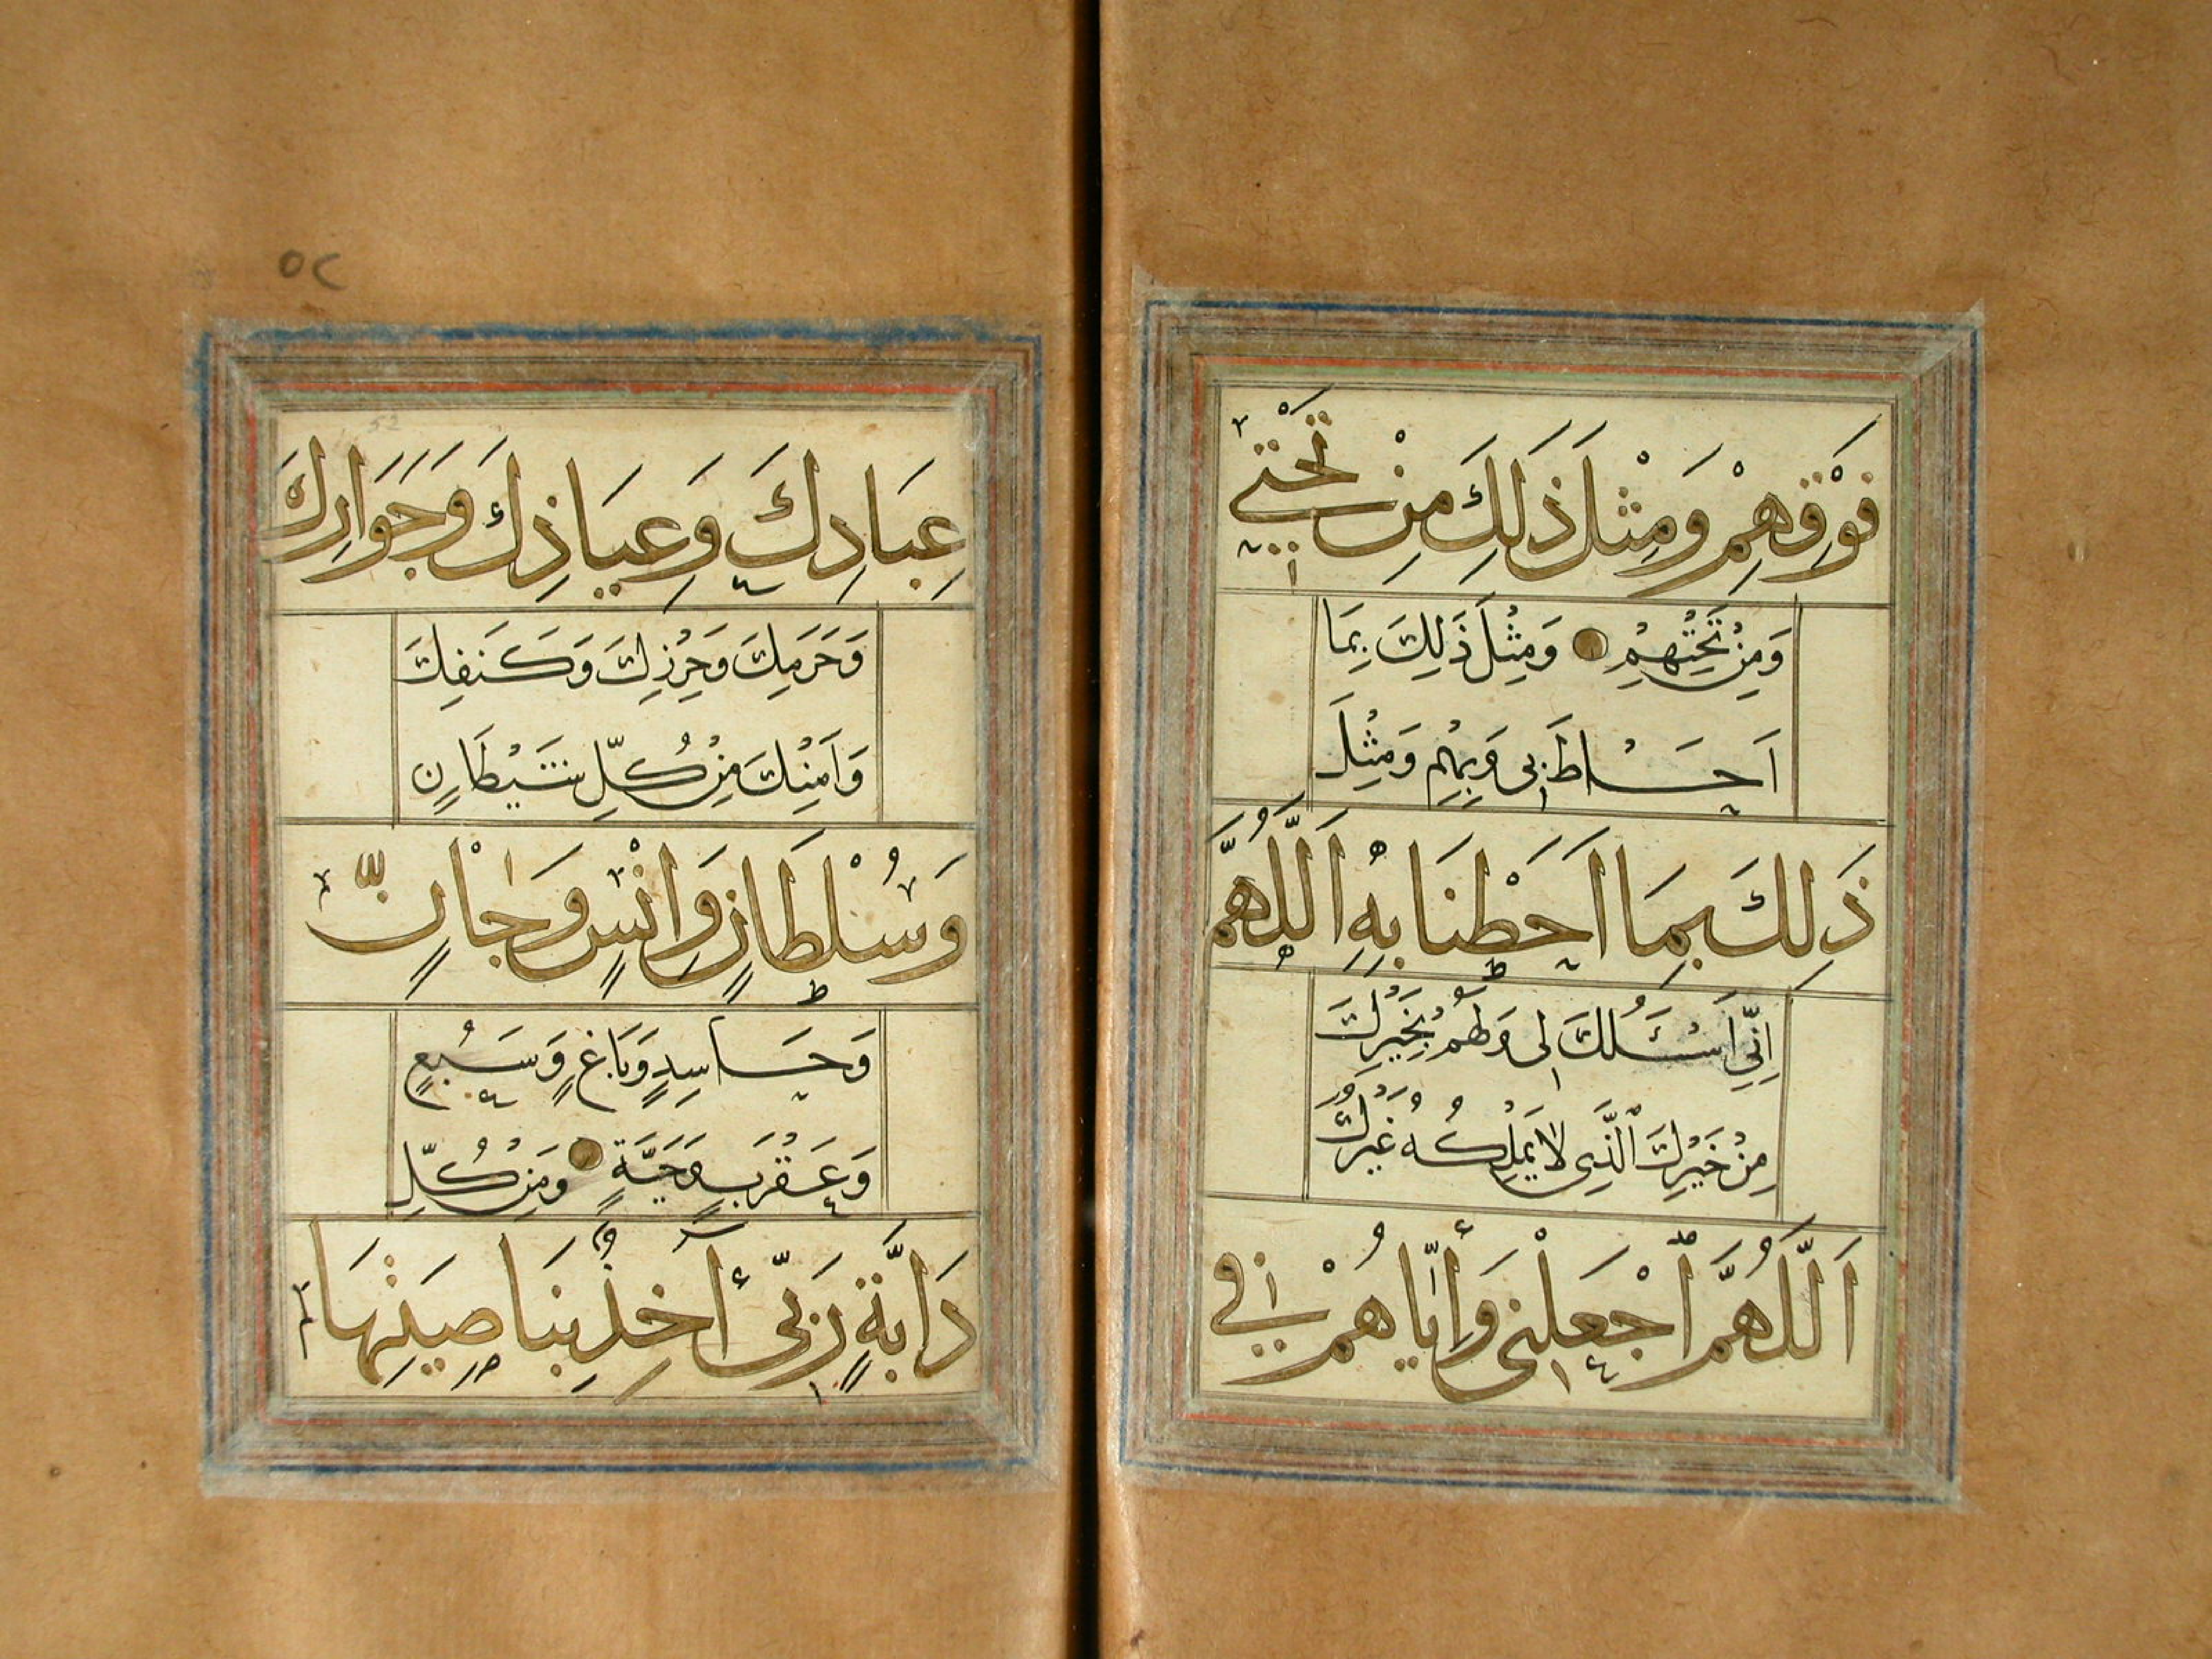 فَوْقِهِمْ وَمِثْلَ ذَلِكَ مِنْ تَحْتِي
وَمِنْ تَحْتِهِمْ وَمِثْلَ ذَلِكَ بِمَا
اَحَاطَ بِى وَبِهِمْ وَمِثْلَ
ذَلِكَ بِمَا اَحَطْنَا بِهِ اَللَّهُمَّ
اِنِّي اَسْئَلُكَ لِى وَلَهُمْ بِخَيْرِكَ
مِنْ خَيْرِكَ الَّذِى لَا يَمْلِكُهُ غَيْرُكَ
اَللَّهُمَّ اجْعَلْنِى وَأِيَّاهُمْ فِي
٥٢
52
عِبَادِكَ وَعِيَاذِكَ وَجَوَارِكَ
وَحَرَمِكَ وَحِرْزِكَ وَكَنَفِكَ
وَاَمْنِكَ مِنْ كُلِّ شَيْطَانٍ
وَسُلْطَانٍ وَاِنْسٍ وَجَانٍّ
وَحَاسِدٍ وَبَاغٍ وَسَبُعٍ
وَعَقْرَبٍ وَحَيَّةٍ وَمِنْ كُلِّ
دَابَّةٍ رَبِّي آخِذٌ بِنَاصِيَتِهَا